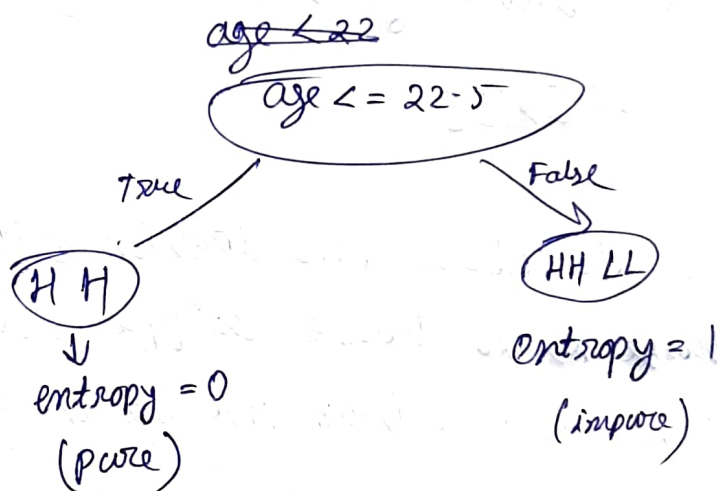 age < 22
age <= 22.5
True
False
H H
HH LL
entropy = 0
(pure)
entropy = 1
(impure)